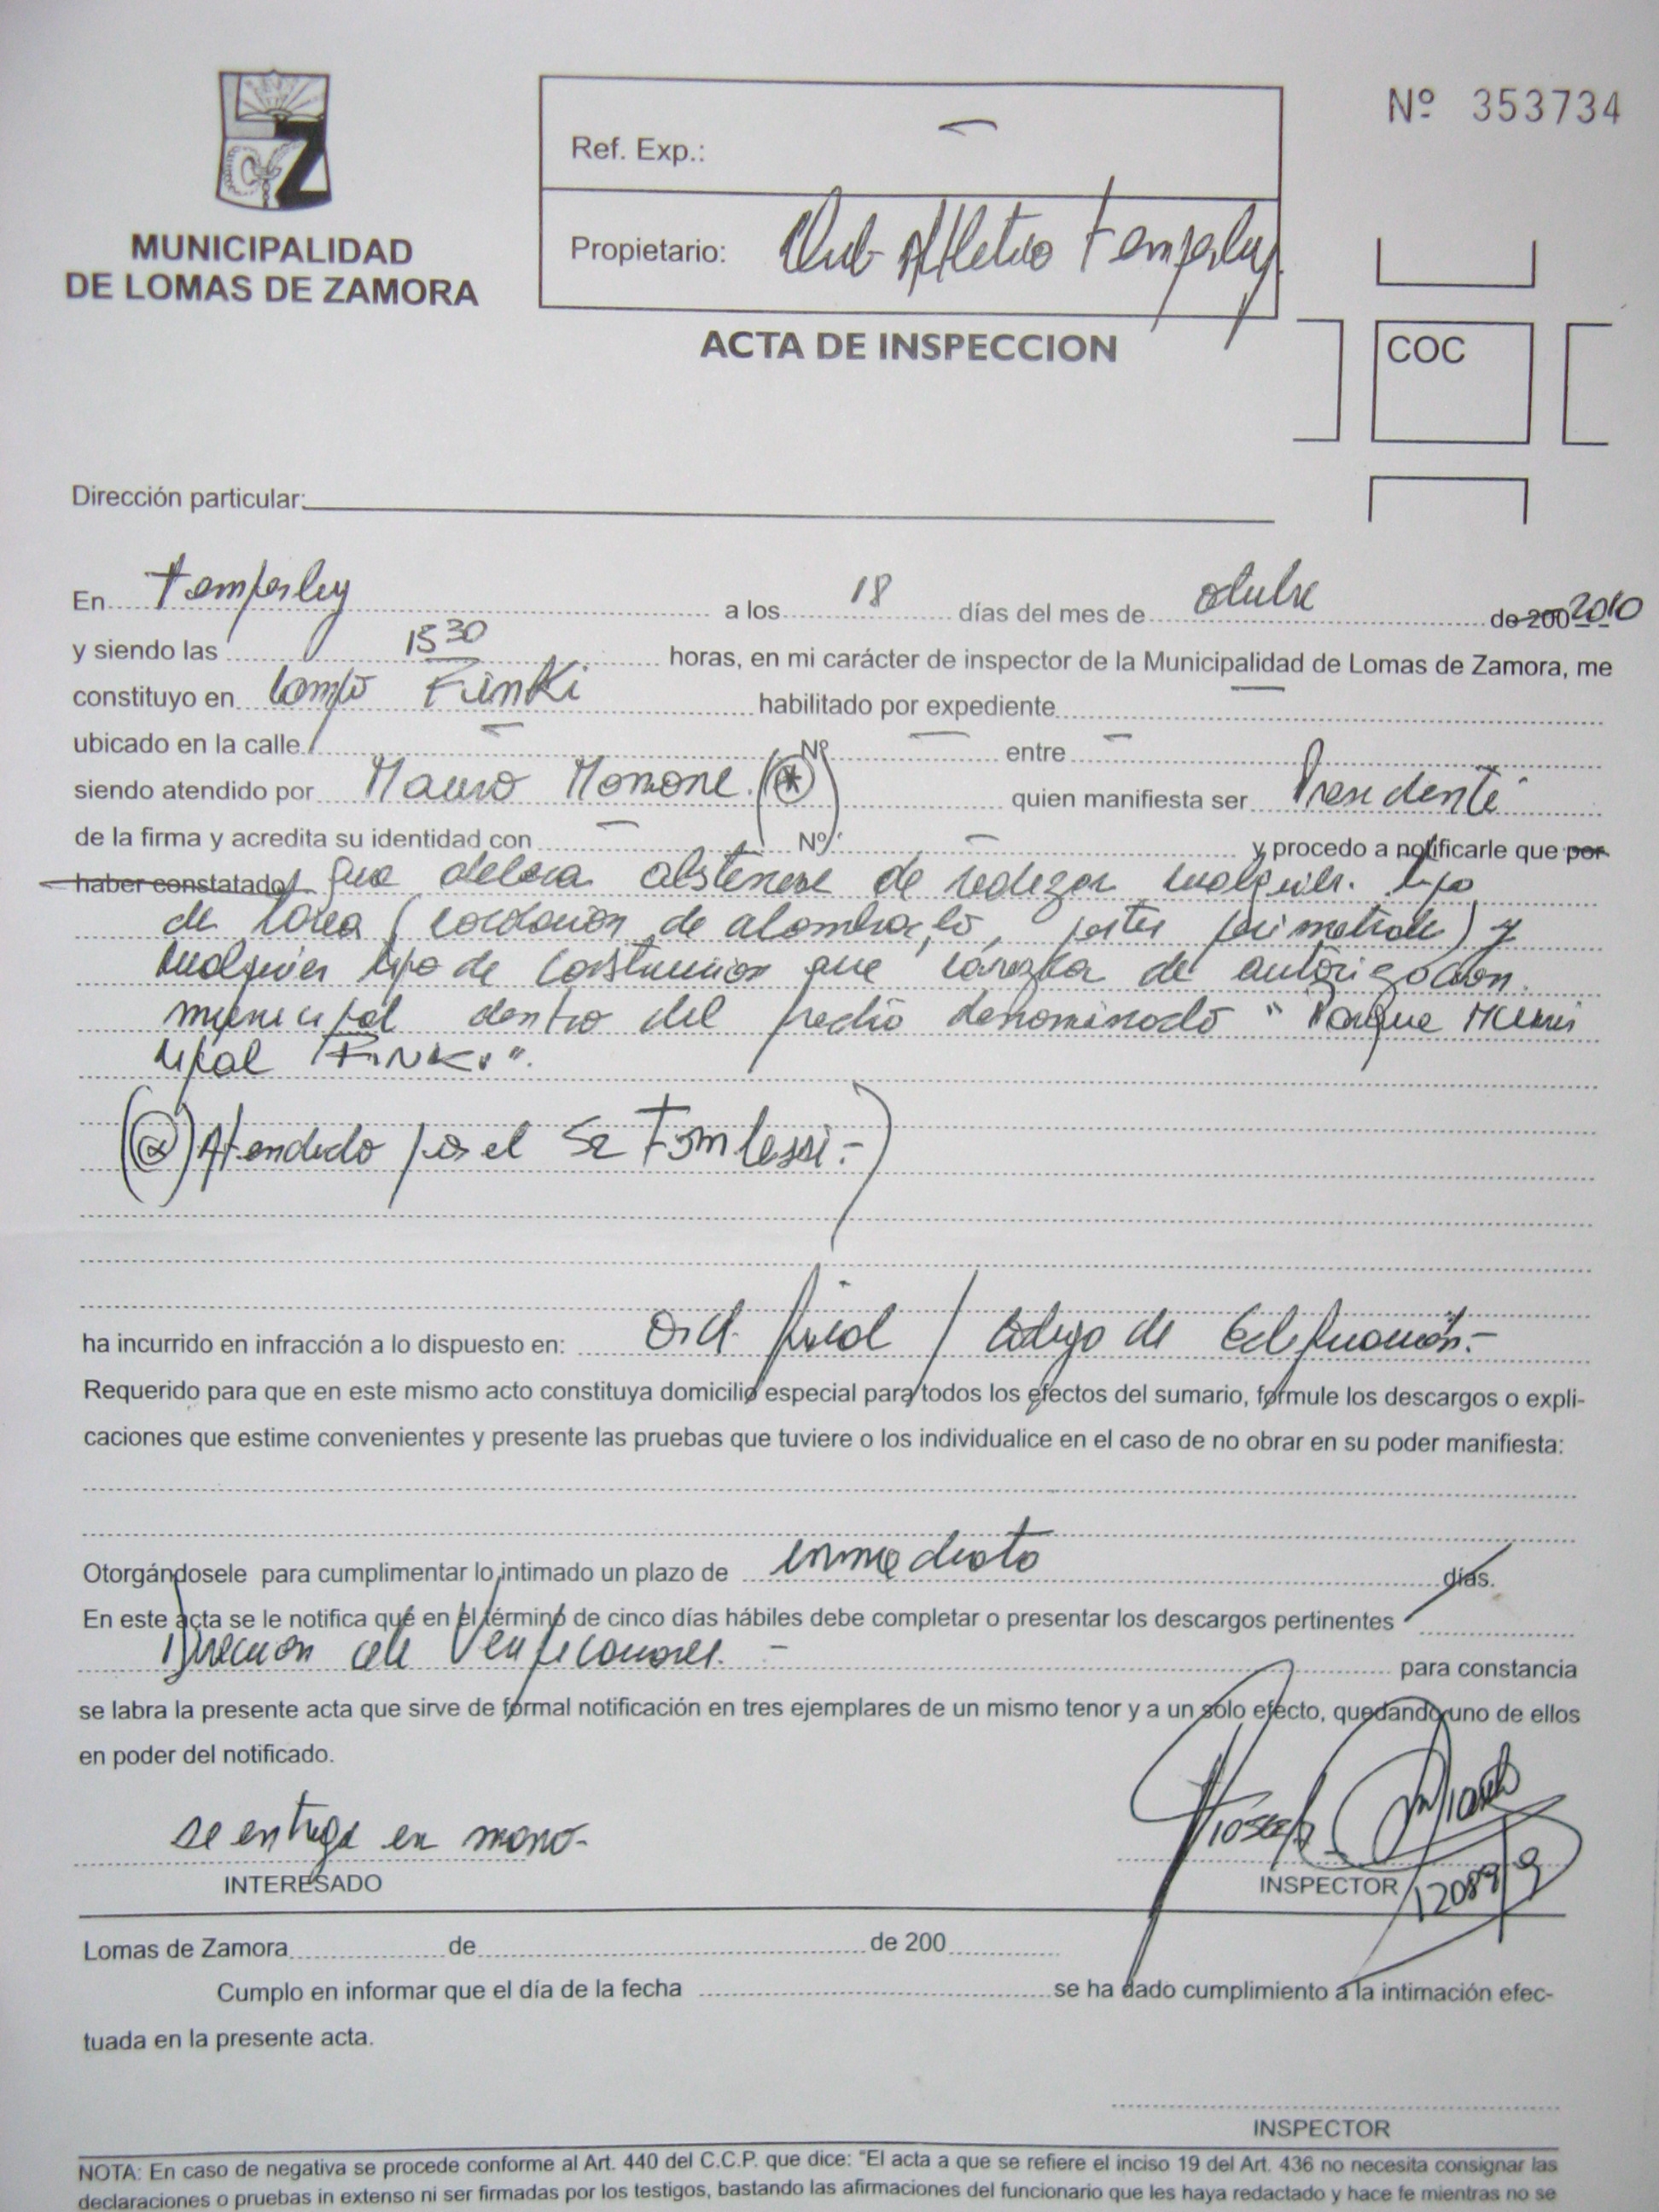 MUNICIPALIDAD
DE LOMAS DE ZAMORA
Ref. Exp.: —
Propietario: Club Atletico Temperley
Nº 353734
ACTA DE INSPECCION
COC
Dirección particular:
En Temperley a los 18 días del mes de octubre de 200 2010
y siendo las 15 30 horas, en mi carácter de inspector de la Municipalidad de Lomas de Zamora, me
constituyo en Campo Finki habilitado por expediente —
ubicado en la calle — Nº — entre —
siendo atendido por Mauro (*) quien manifiesta ser Presidente
de la firma y acredita su identidad con — Nº — y procedo a notificarle que por
haber constatado que debera abstenerse de realizar cualquier tipo
de tarea ( de alambrado, postes perimetrales) y
cualquier tipo de construccion que carezca de autorizacion
municipal dentro del predio denominado "Parque Muni
cipal FINKI".
Atendido por el Sr
ha incurrido en infracción a lo dispuesto en: Ord. / Codigo de Edificación.-
Requerido para que en este mismo acto constituya domicilio especial para todos los efectos del sumario, formule los descargos o expli-
caciones que estime convenientes y presente las pruebas que tuviere o los individualice en el caso de no obrar en su poder manifiesta:
Otorgándosele para cumplimentar lo intimado un plazo de inmediato días.
En este acta se le notifica que en el término de cinco días hábiles debe completar o presentar los descargos pertinentes
Direccion de Verificaciones. - para constancia
se labra la presente acta que sirve de formal notificación en tres ejemplares de un mismo tenor y a un solo efecto, quedando uno de ellos
en poder del notificado.
se entrega en mano-
INTERESADO
INSPECTOR
Lomas de Zamora de de 200
Cumplo en informar que el día de la fecha se ha dado cumplimiento a la intimación efec-
tuada en la presente acta.
INSPECTOR
NOTA: En caso de negativa se procede conforme al Art. 440 del C.C.P. que dice: "El acta a que se refiere el inciso 19 del Art. 436 no necesita consignar las
declaraciones o pruebas in extenso ni ser firmadas por los testigos, bastando las afirmaciones del funcionario que les haya redactado y hace fe mientras no se